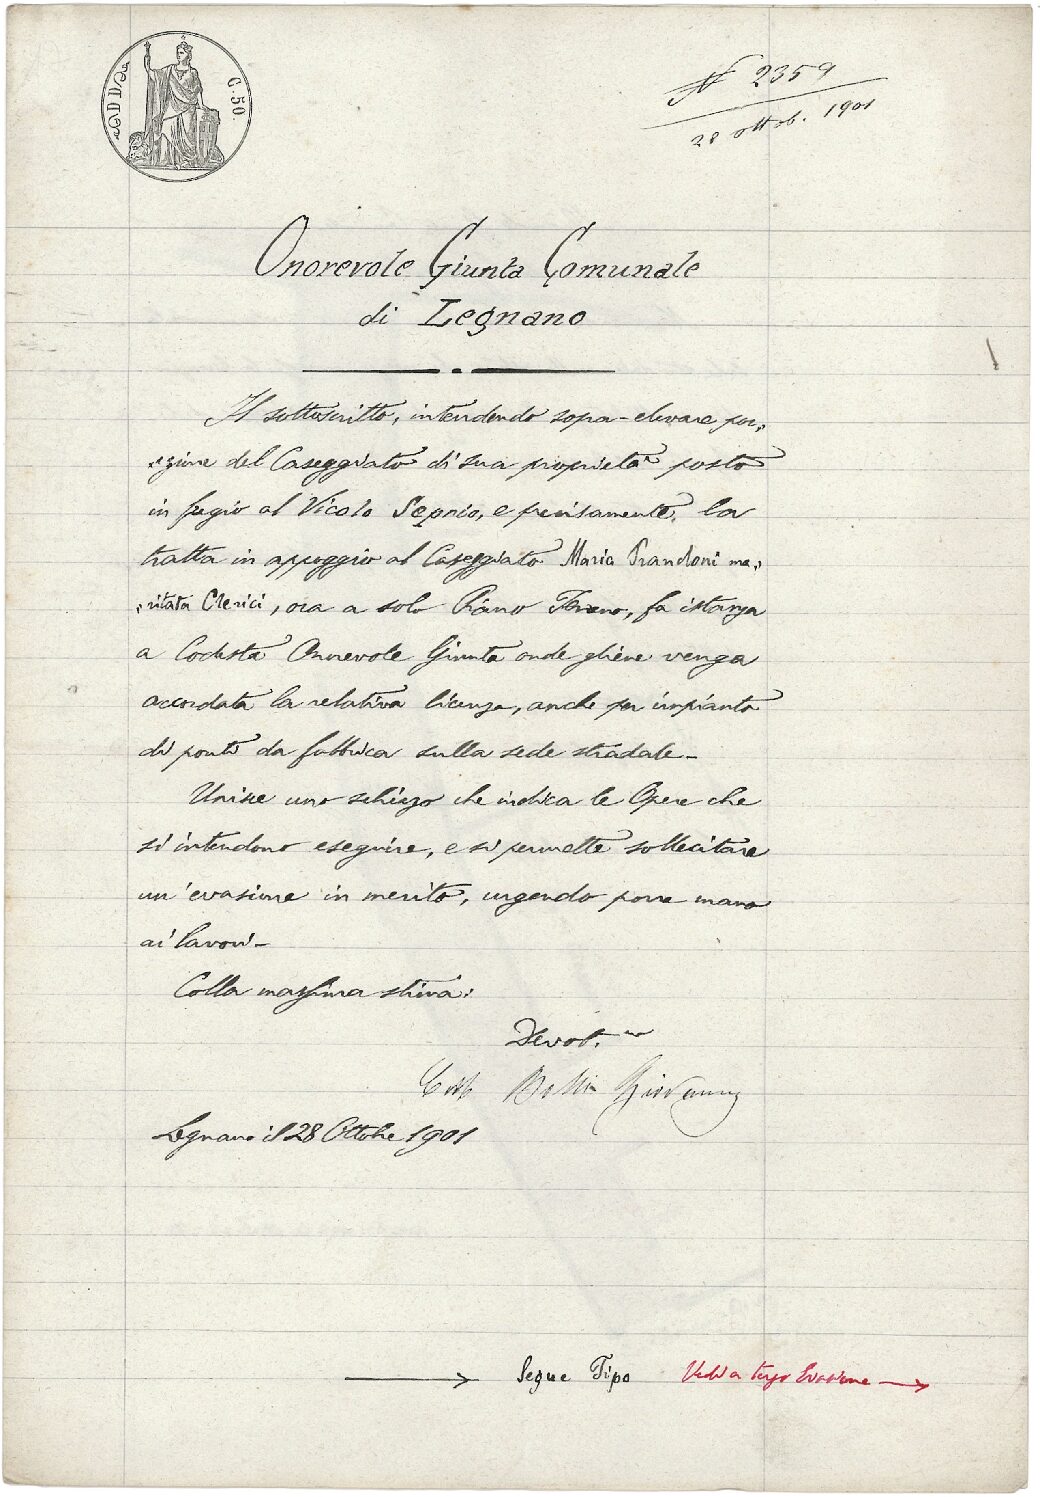 C. 50
N 2359
28 ottob. 1901
Onorevole Giunta Comunale
di Legnano
Il sottoscritto, intendendo sopra-elevare por„
„zione del Caseggiato di sua proprietà posto
in fregio al Vicolo Seprio, e precisamente, la
tratta in appoggio al Caseggiato Maria Prandoni ma„
„ritata Clerici, ora a solo Piano Terreno, fa istanza
a Codesta Onorevole Giunta onde gliene venga
accordata la relativa licenza, anche per impianto
di ponti da fabbrica sulla sede stradale_
Unisce uno schizzo che indica le Opere che
si intendono eseguire, e si permette sollecitare
un'evasione in merito, urgendo porre mano
ai lavori_
Colla massima stima:
Devot.mo
Giovanni
Legnano il 28 Ottobre 1901
Segue Tipo Vedi a tergo Evasione